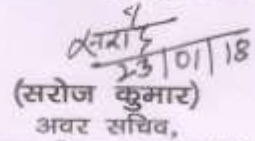 23/01/18
(सरोज कुमार)
अवर सचिव,